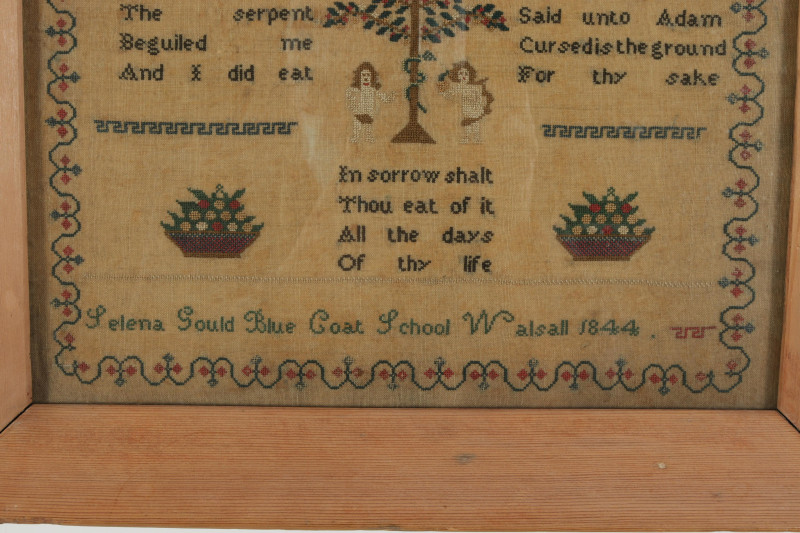 The serpent
Beguiled me
And I did eat
Said unto Adam
Cursed is the ground
For thy sake
In sorrow shalt
Thou eat of it
All the days
Of thy life
Selena Gould Blue Coat School Walsall 1844.